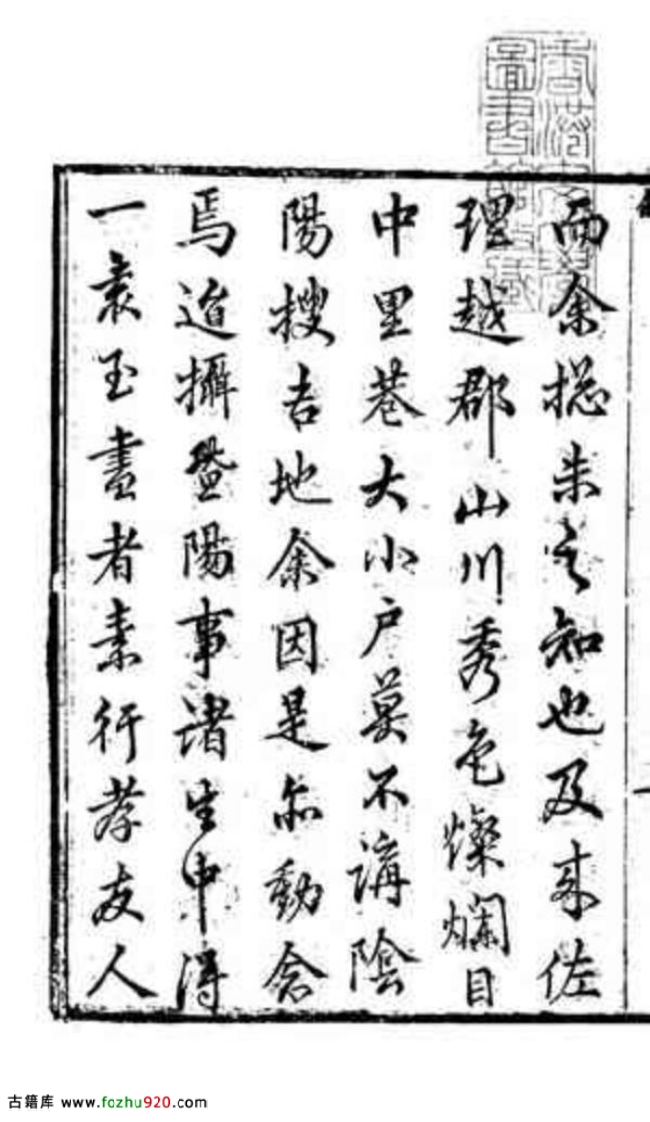 而余摠未之知也及来佐
理越郡山川秀色燦爛目
中里巷大小户莫不講陰
陽搜吉地余因是亦動念
焉迨攝暨陽事諸生中得
一袁玉書者素行孝友人
古籍库 www.fozhu920.com